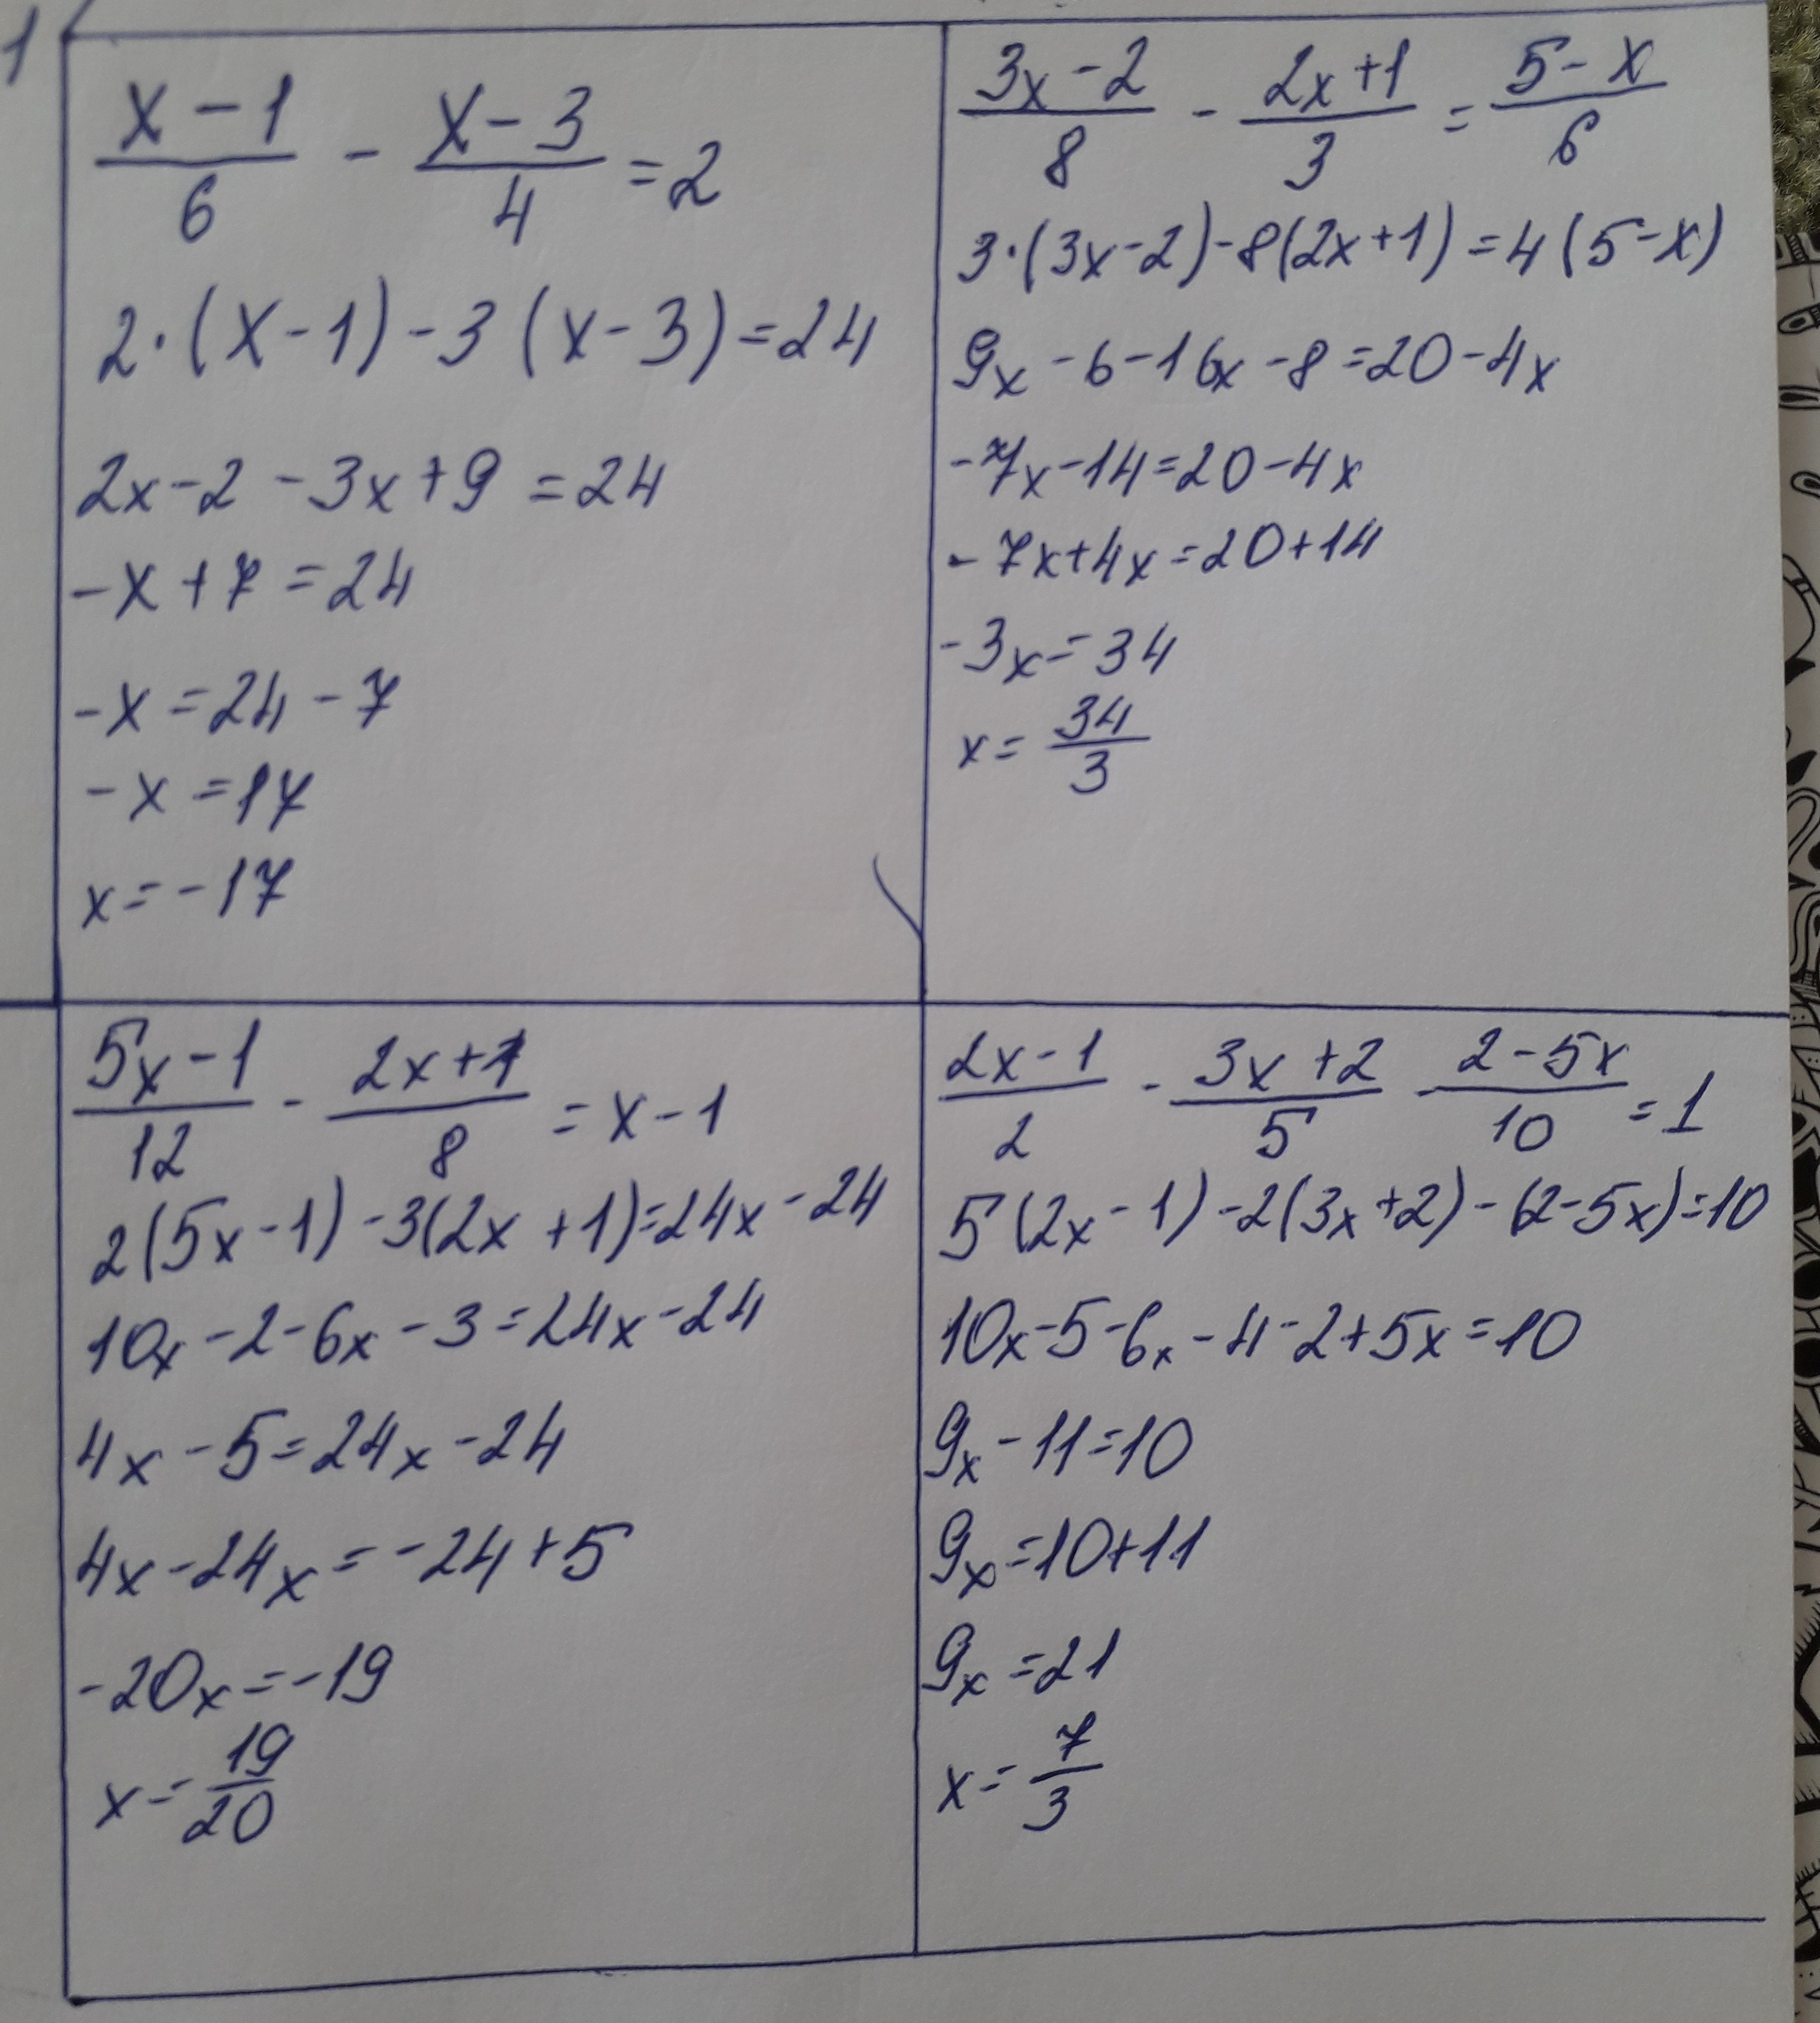 1
x-1/6 - x-3/4 =2
2·(x-1)-3(x-3)=24
2x-2-3x+9=24
-x+7=24
-x=24-7
-x=17
x=-17
3x-2/8 - 2x+1/3 = 5-x/6
3·(3x-2)-8(2x+1)=4(5-x)
9x-6-16x-8=20-4x
-7x-14=20-4x
-7x+4x=20+14
-3x=34
x=34/3
5x-1/12 - 2x+1/8 =x-1
2(5x-1)-3(2x+1)=24x-24
10x-2-6x-3=24x-24
4x-5=24x-24
4x-24x=-24+5
-20x=-19
x=19/20
2x-1/2 - 3x+2/5 - 2-5x/10 =1
5(2x-1)-2(3x+2)-(2-5x)=10
10x-5-6x-4-2+5x=10
9x-11=10
9x=10+11
9x=21
x=7/3